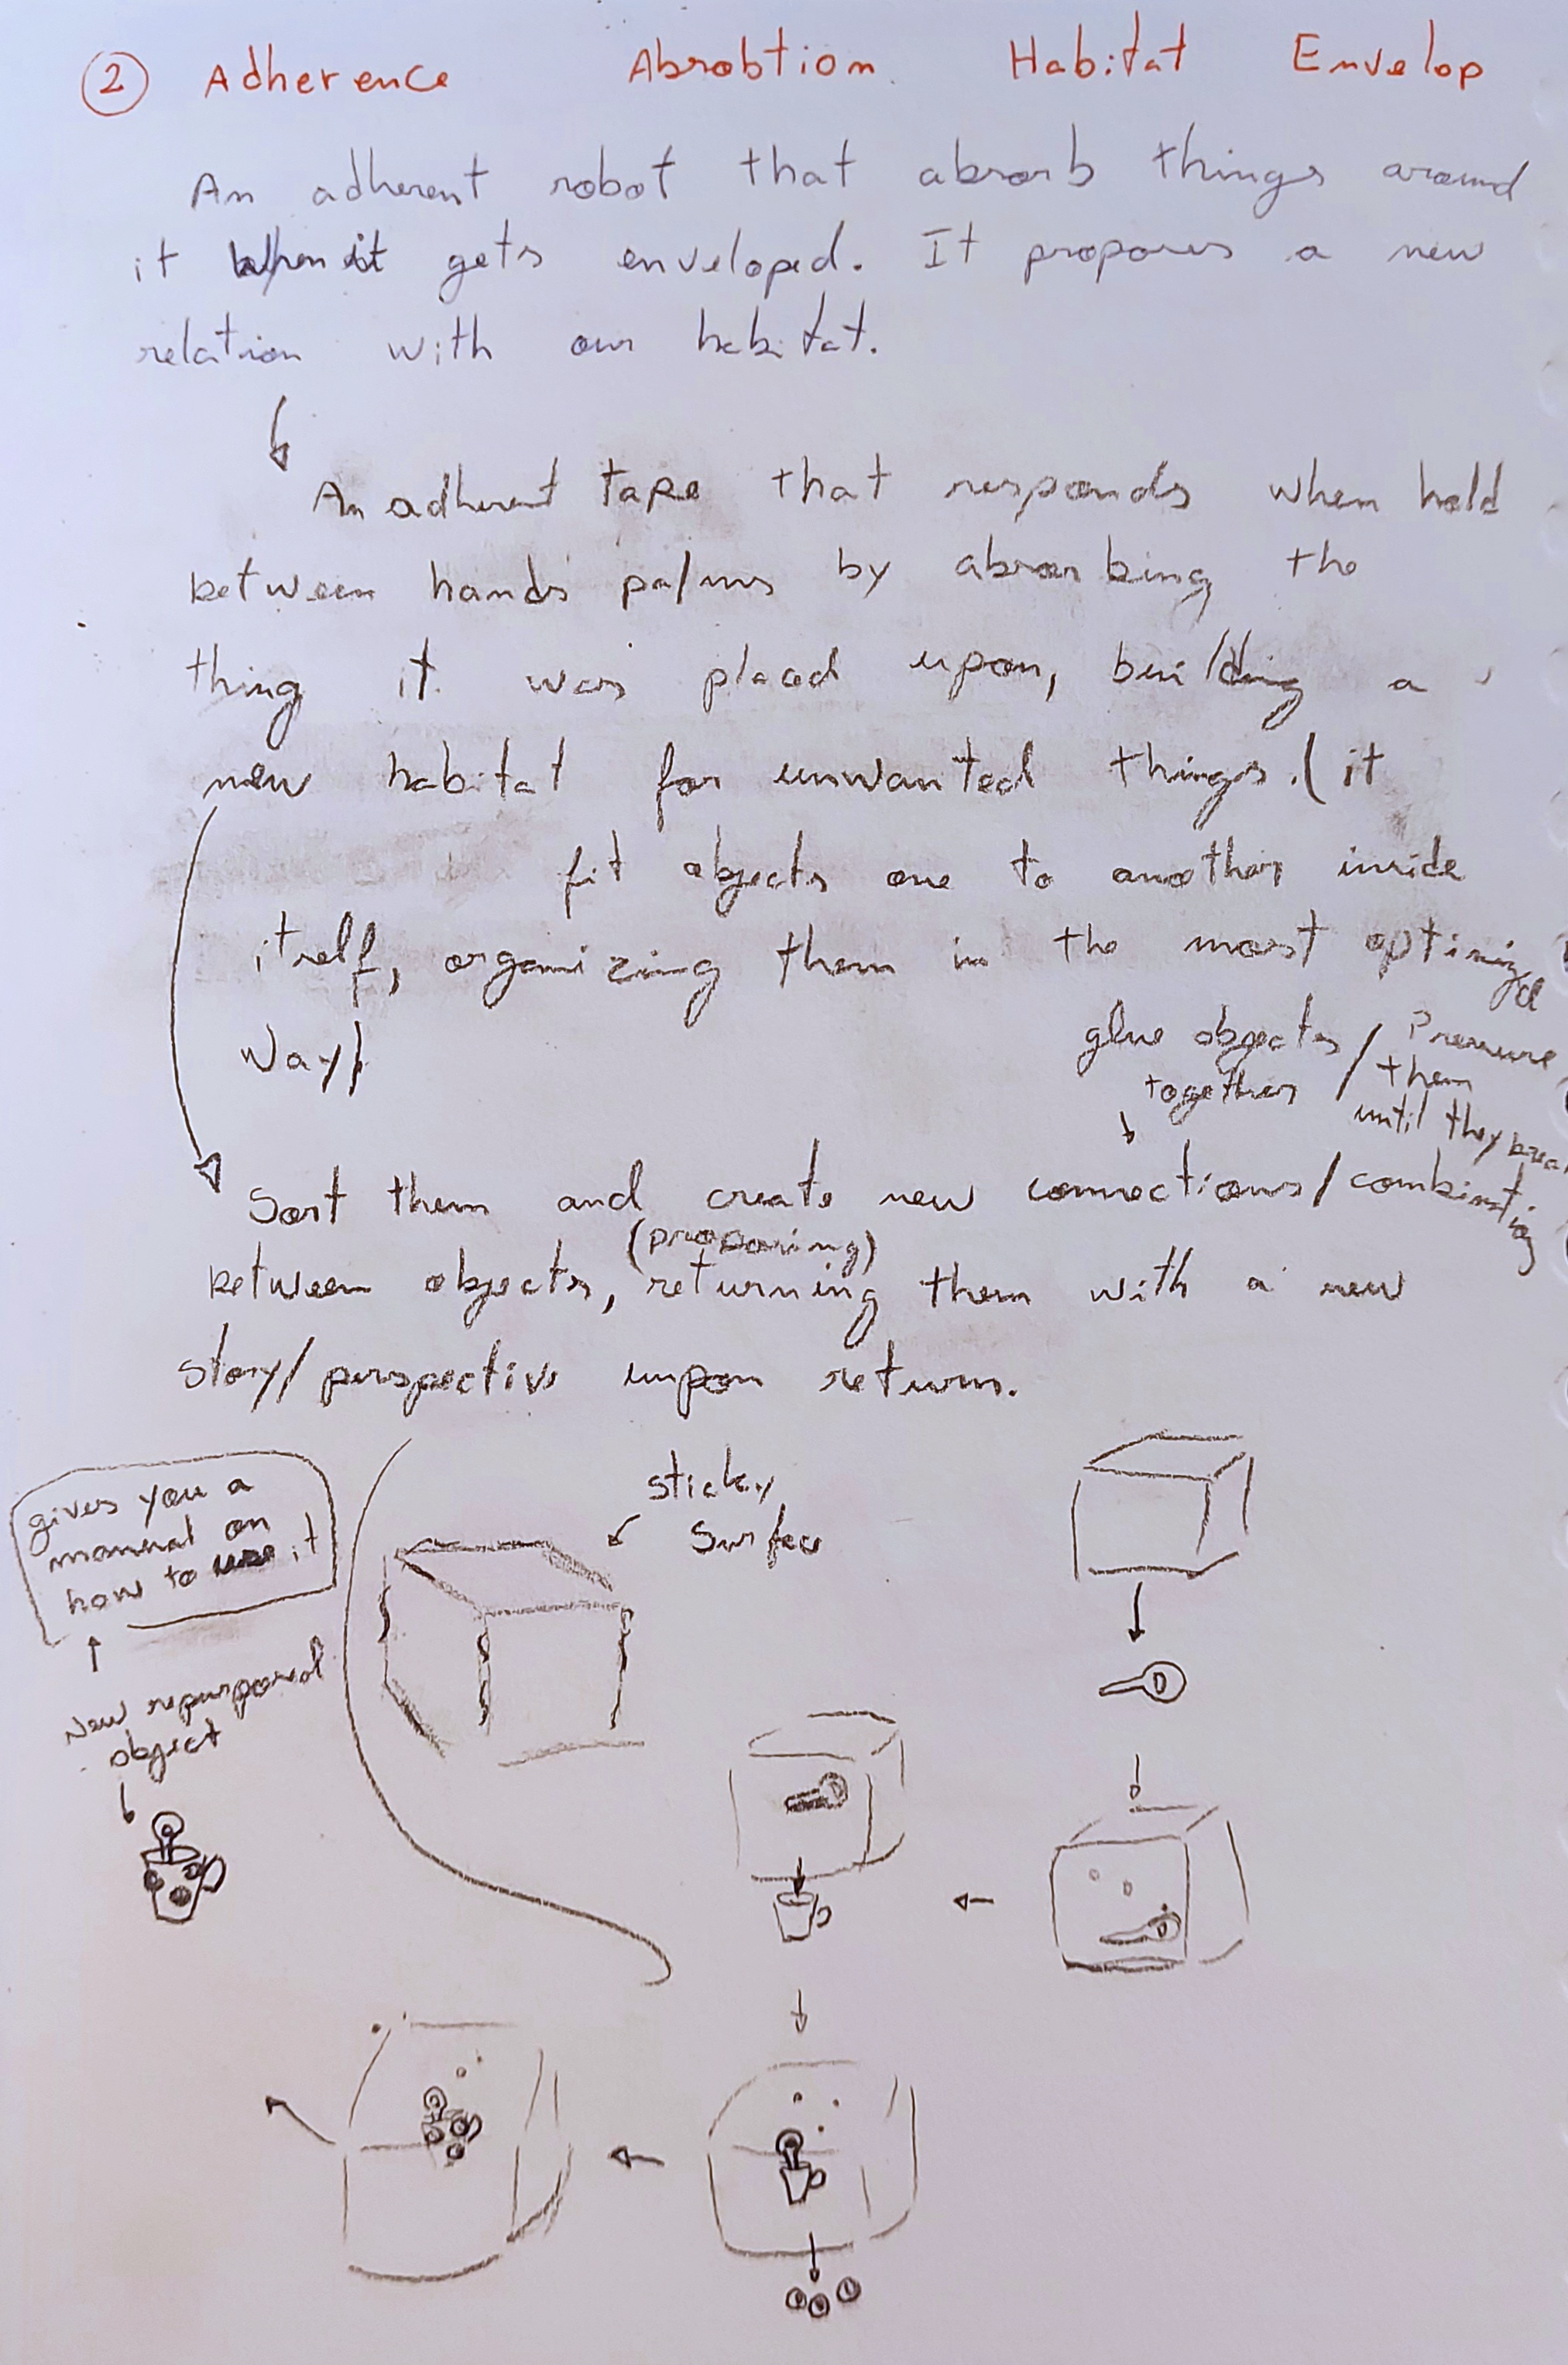 2 Adherence Abrobtion Habitat Envelop
An adherent robot that absorb things around
it when it gets enveloped. It proposes a new
relation with our habitat.
An adherent tape that responds when hold
between hands palms by absorbing the
thing it was placed upon, building a
new habitat for unwanted things. (it
fit objects one to another inside
itself, organizing them in the most optimized
way)
glue objects / Pressure
together / them
until they break
Sort them and create new connections/combinations
(proposing)
between objects, returning them with a new
story/perspective unpon return.
sticky
surface
gives you a
manual on
how to use it
New repurposed
object